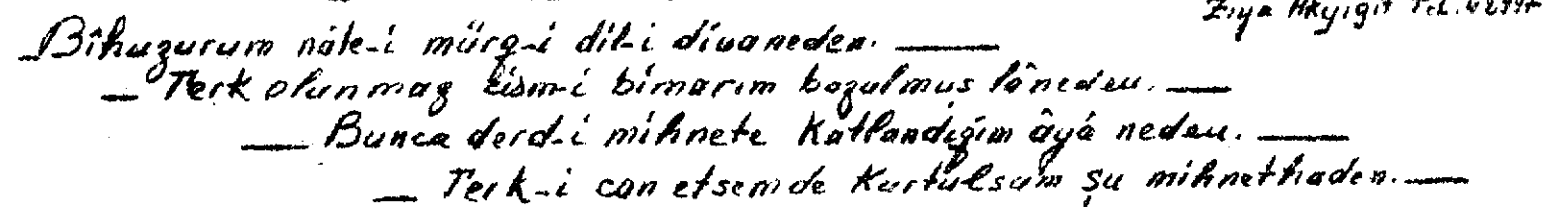 Ziya Akyiğit Tel.
Bîhuzurum nâle-i mürg-i dil-i divaneden.
Terk olunmaz cism-i bimarım bozulmuş lâneden.
Bunca derd-i mihnete Katlandığım âyâ neden.
Terk-i can etsemde Kurtulsam şu mihnethaden.